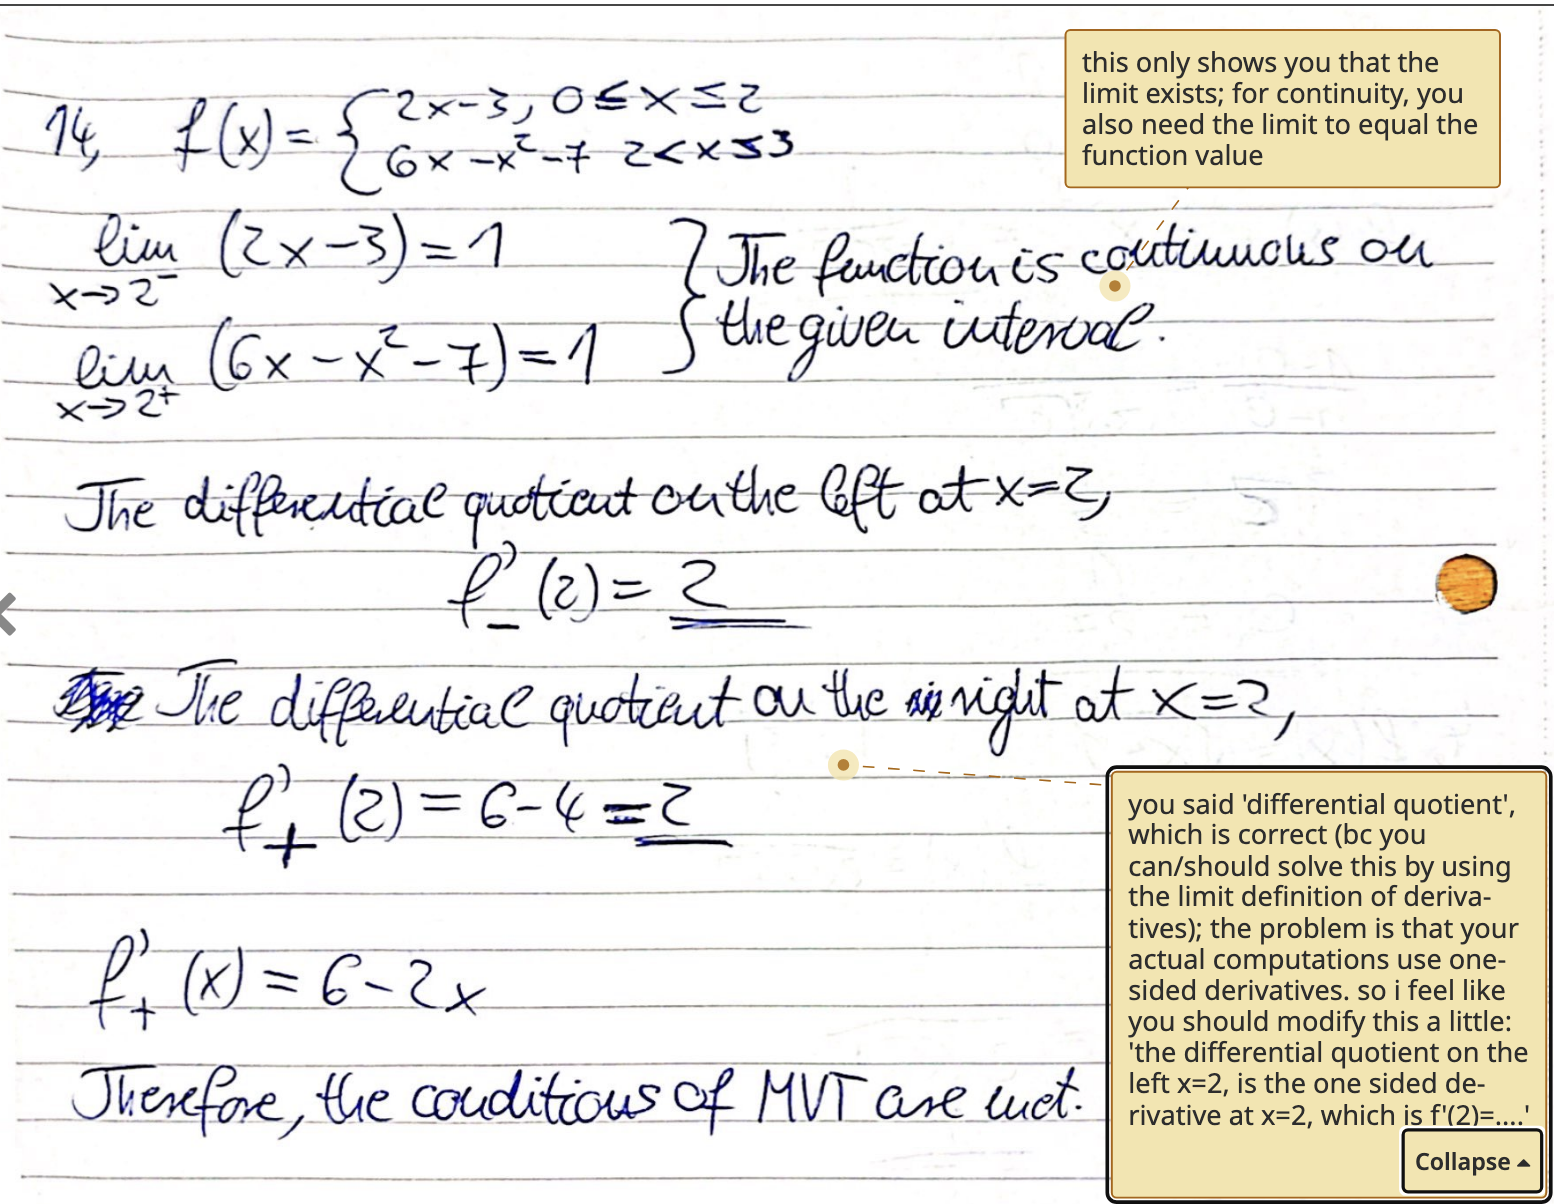 14, f(x) = { 2x-3, 0 ≤ x ≤ 2
6x -x²-7 2<x≤3
this only shows you that the
limit exists; for continuity, you
also need the limit to equal the
function value
lim x→2⁻ (2x-3) = 1
lim x→2⁺ (6x - x² - 7) = 1
} The function is continuous on
the given interval.
The differential quotient on the left at x=2,
f'₋ (2) = 2
The differential quotient on the right at x=2,
f'₊ (2) = 6-4 = 2
f'₊ (x) = 6-2x
Therefore, the conditions of MVT are met.
you said 'differential quotient',
which is correct (bc you
can/should solve this by using
the limit definition of deriva-
tives); the problem is that your
actual computations use one-
sided derivatives. so i feel like
you should modify this a little:
'the differential quotient on the
left x=2, is the one sided de-
rivative at x=2, which is f'(2)=....'
Collapse